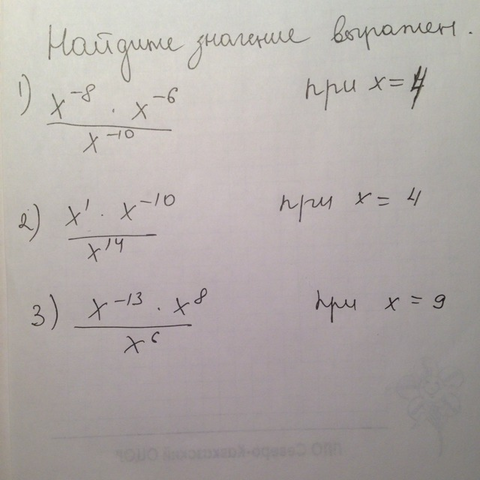 Найдите значение выражен.
1) x⁻⁸ · x⁻⁶ / x⁻¹⁰ при x = 4
2) x¹ · x⁻¹⁰ / x¹⁴ при x = 4
3) x⁻¹³ · x⁸ / x⁶ при x = 9